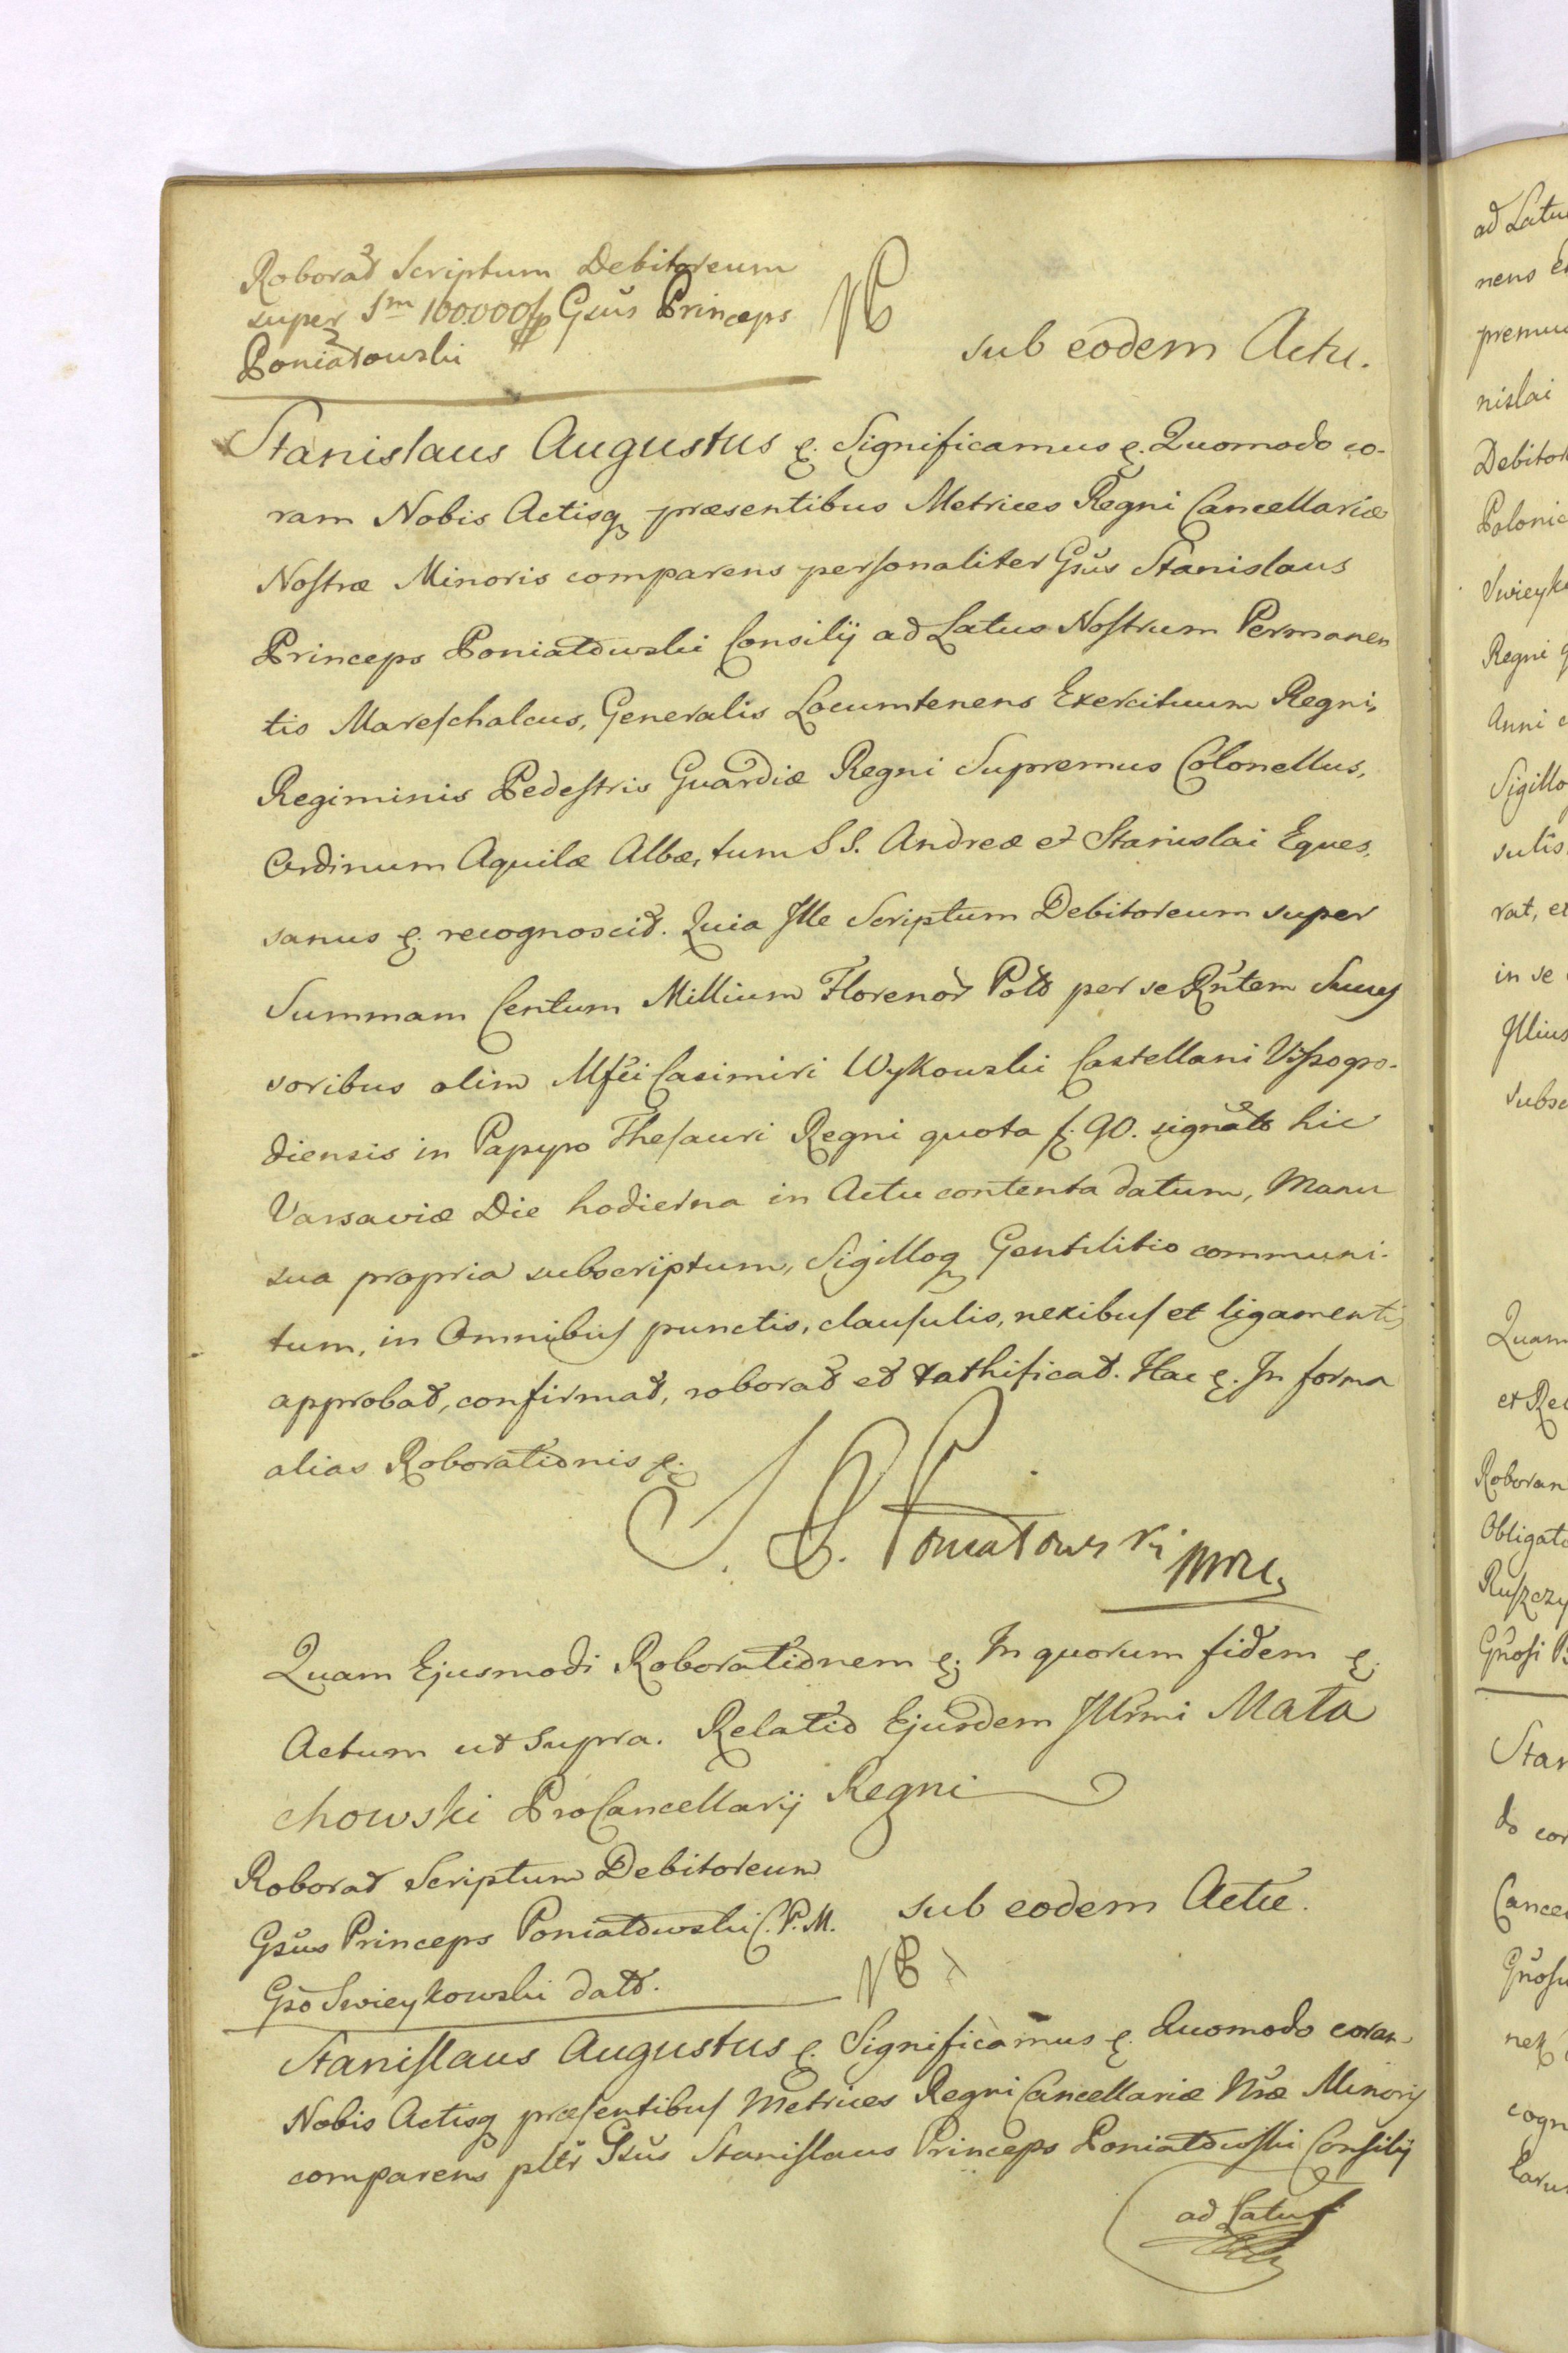 Roborat Scriptum Debitoreum
super Sm 100.000 fp Gsus Princeps
Poniatowski
NB
sub eodem Actu.
Stanislaus Augustus &. Significamus &. Quomodo co-
ram Nobis Actisq præsentibus Metrices Regni Cancellariæ
Noſtræ Minoris comparens perſonaliter Gsus Stanislaus
Princeps Poniatowski Consilij ad Latus Noſtrum Permanen
tis Mareſchalcus, Generalis Locumtenens Exercituum Regni,
Regiminis Pedeſtris Guardiæ Regni Supremus Colonellus,
Ordinum Aquilæ Albæ, tum S S. Andreæ et Stanislai Eques,
sanus &. recognoscit. Quia Ille Scriptum Debitoreum super
Summam Centum Millium Florenor Polo per se Rntem Succes
soribus olim Mfci Casimiri Wykowski Castellani Viſsogro-
diensis in Papyro Theſauri Regni quota f. 90. signato hic
Varsaviæ Die hodierna in Actu contenta datum, Manu
sua propria subscriptum, Sigilloq Gentilitio communi-
tum, in Omnibuſ punctis, clauſulis, nexibuſ et ligamentis
approbat, confirmat, roborat et rathificat. Hac &. In forma
alias Roborationis &.
S. P. Poniatowski mpp
Quam Ejusmodi Roborationem &. In quorum fidem &.
Actum ut supra. Relatio Ejusdem Illrmi Mała
chowski ProCancellarij Regni
Roborat Scriptum Debitoreum
Gsus Princeps Poniatowski C. P. M.
Gso Swieykowski dato.
NB
sub eodem Actu.
Staniſlaus Augustus &. Significamus &. Quomodo coram
Nobis Actisq præſentibuſ Metrices Regni Cancellariæ Nræ Minoris
comparens pltr Gsus Staniſlaus Princeps Poniatowſki Conſilij
ad Latuſ
ad Latu
nens
premu
nislai
Debitor
Polonic
Swieyk
Regni
Anni
Sigillo
sutis
rat, et
in se
Illius
subsc
Quam
et Re
Roboran
Obligato
Ruſzczy
Gnosi
Stan
do cor
Cancel
Gnoſu
nek
cogn
Larus